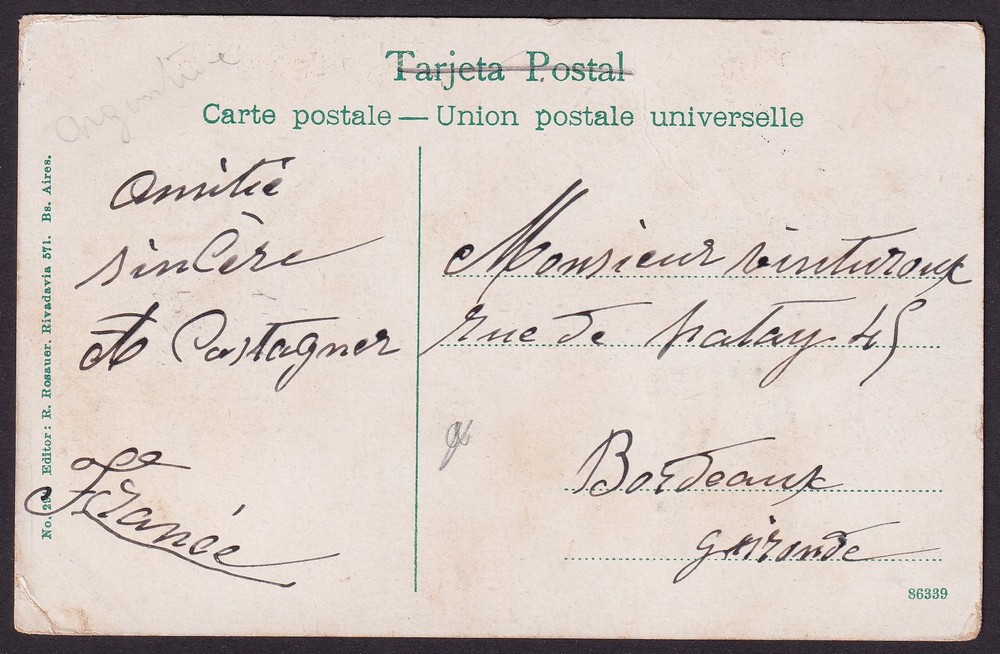 Argentine
Tarjeta Postal
Carte postale — Union postale universelle
No. 29. Editor: R. Rosauer. Rivadavia 571. Bs. Aires.
Amitié
sincère
A Castagner
France
Monsieur Vinturoux
rue de Patay 45
Bordeaux
Gironde
86339